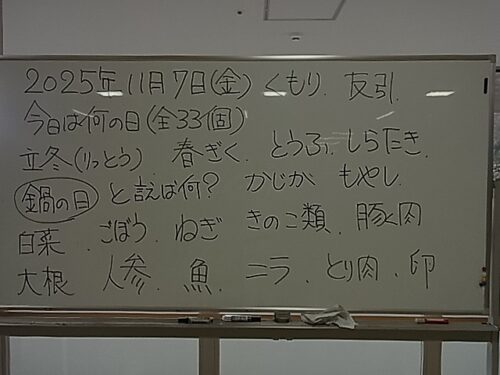 2025年11月7日(金) くもり. 友引.
今日は何の日(全33個)
立冬(りっとう) 春ぎく. とうふ. しらたき.
鍋の日 と言えば何? かじか もやし.
白菜 . ごぼう. ねぎ きのこ類. 豚肉
大根 人参. 魚. ニラ. とり肉. 卵